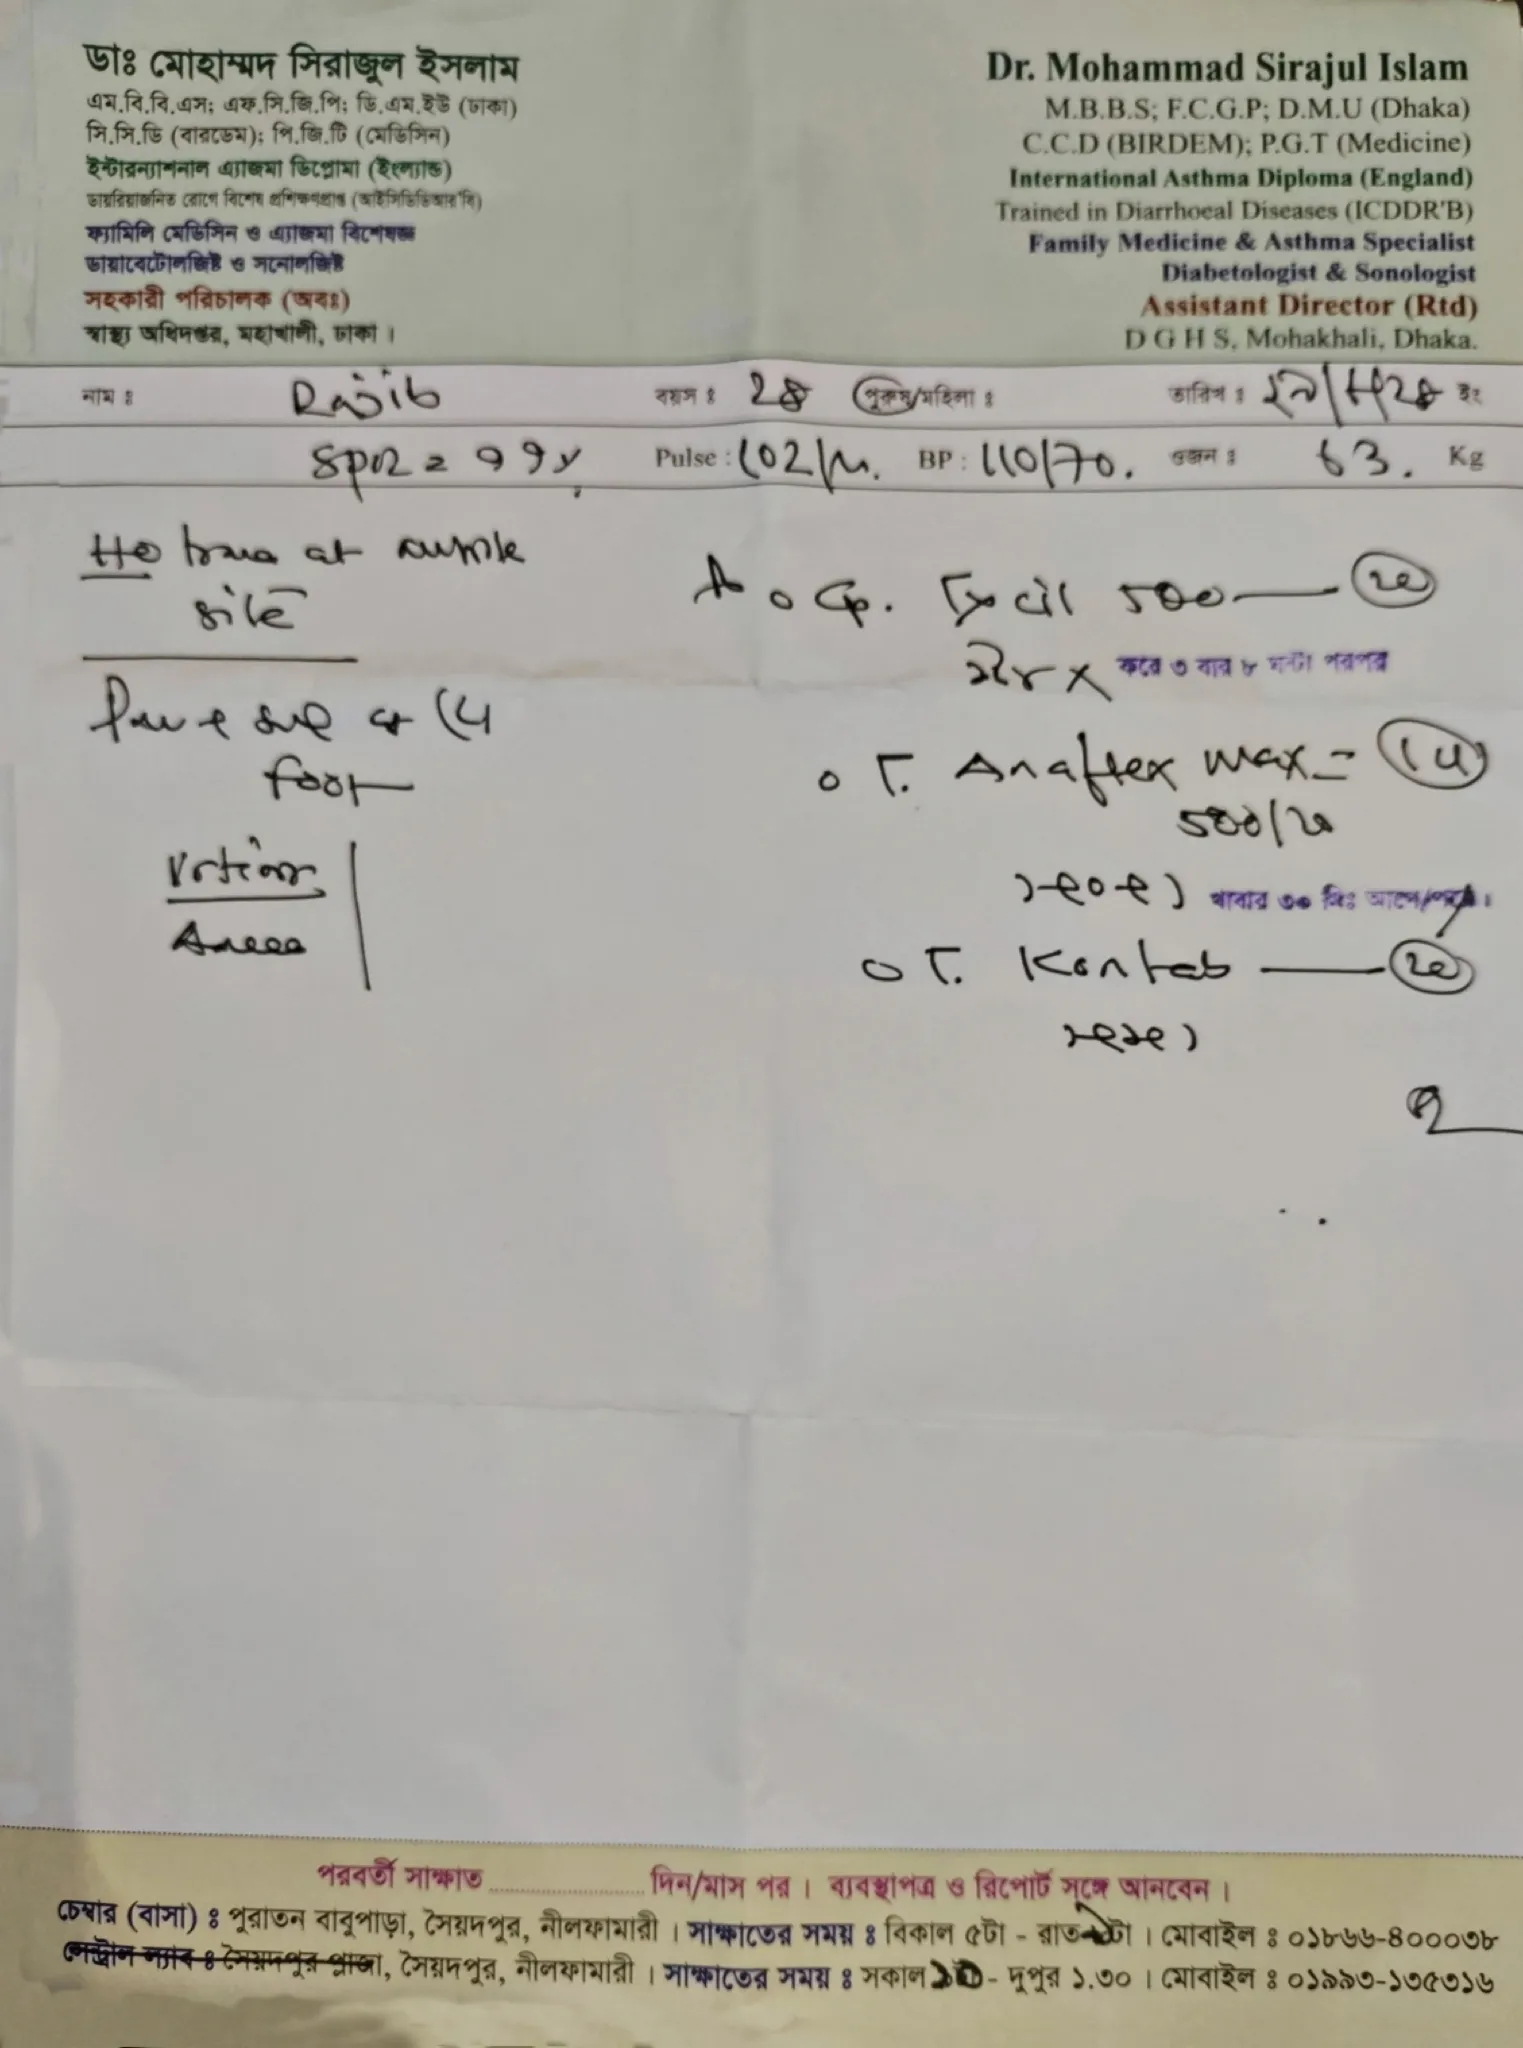 ডাঃ মোহাম্মদ সিরাজুল ইসলাম
এম.বি.বি.এস; এফ.সি.জি.পি; ডি.এম.ইউ (ঢাকা)
সি.সি.ডি (বারডেম); পি.জি.টি (মেডিসিন)
ইন্টারন্যাশনাল এ্যাজমা ডিপ্লোমা (ইংল্যান্ড)
ডায়রিয়াজনিত রোগে বিশেষ প্রশিক্ষণপ্রাপ্ত (আইসিডিডিআর'বি)
ফ্যামিলি মেডিসিন ও এ্যাজমা বিশেষজ্ঞ
ডায়াবেটোলজিষ্ট ও সনোলজিষ্ট
সহকারী পরিচালক (অবঃ)
স্বাস্থ্য অধিদপ্তর, মহাখালী, ঢাকা ।
Dr. Mohammad Sirajul Islam
M.B.B.S; F.C.G.P; D.M.U (Dhaka)
C.C.D (BIRDEM); P.G.T (Medicine)
International Asthma Diploma (England)
Trained in Diarrhoeal Diseases (ICDDR'B)
Family Medicine & Asthma Specialist
Diabetologist & Sonologist
Assistant Director (Rtd)
D G H S, Mohakhali, Dhaka.
নাম ঃ Rajib বয়স ঃ 28 পুরুষ/মহিলা ঃ তারিখ ঃ ইং
Spo2 = 99% Pulse : 102/m. BP : 110/70. ওজন ঃ 63. Kg
at
site
foot
Cp. 500
করে ৩ বার ৮ ঘন্টা পরপর
T. Anaflex max = 14
500/20
১+০+১ খাবার ৩০ মিঃ আগে/পরে।
T. Kontab
১+১+১
পরবর্তী সাক্ষাত .................... দিন/মাস পর । ব্যবস্থাপত্র ও রিপোর্ট সঙ্গে আনবেন ।
চেম্বার (বাসা) ঃ পুরাতন বাবুপাড়া, সৈয়দপুর, নীলফামারী । সাক্ষাতের সময় ঃ বিকাল ৫টা - রাত ৯টা । মোবাইল ঃ ০১৮৬৬-৪০০০৩৮
সেন্ট্রাল ল্যাব ঃ সৈয়দপুর প্লাজা, সৈয়দপুর, নীলফামারী । সাক্ষাতের সময় ঃ সকাল ১০ - দুপুর ১.৩০ । মোবাইল ঃ ০১৯৯৩-১৩৫৩১৬